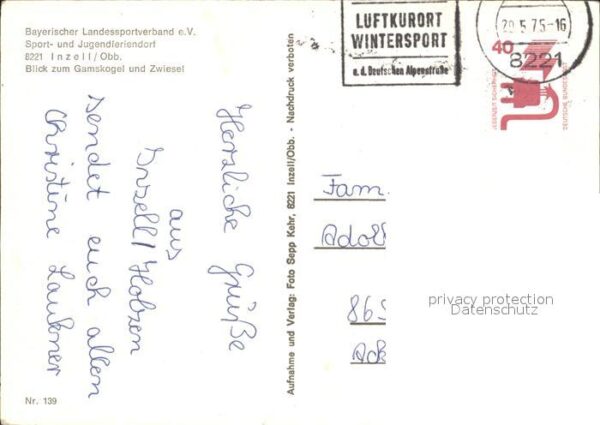 Bayerischer Landessportverband e.V.
Sport- und Jugendferiendorf
8221 Inzell/Obb.
Blick zum Gamskogel und Zwiesel
Herzliche Grüße
aus
Inzell/
sendet euch allen
Christine
Nr. 139
Aufnahme und Verlag: Foto Sepp Kehr, 8221 Inzell/Obb. - Nachdruck verboten
LUFTKURORT
WINTERSPORT
a. d. Deutschen Alpenstraße
5.75-16
8221
40
DEUTSCHE BUNDESPOST
Fam.
Adol
privacy protection
Datenschutz